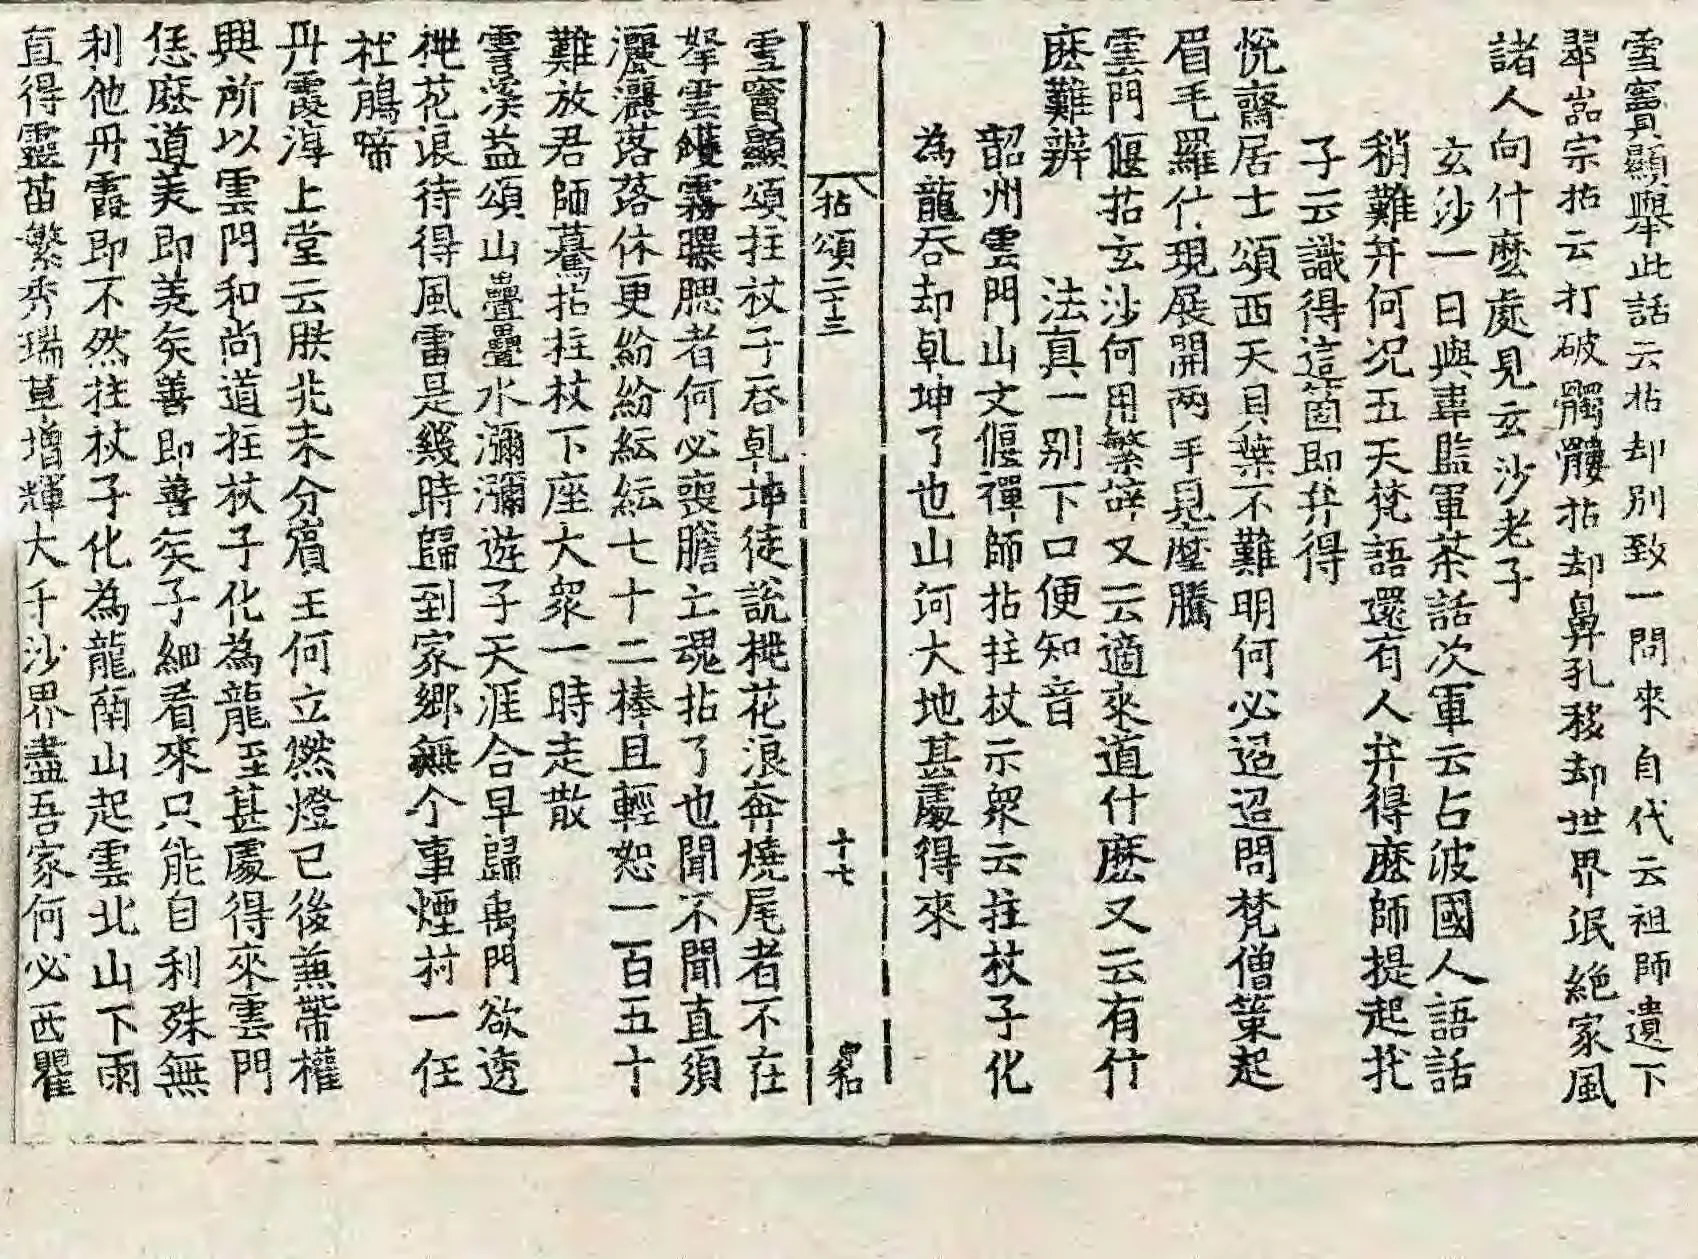 雪竇顯舉此話云拈却別致一問來自代云祖師遺下
翠嵓宗拈云打破髑髏拈却鼻孔移却世界泯絶家風
諸人向什麽處見玄沙老子
玄沙一日與韋監軍茶話次軍云占波國人語話
稍難弁何况五天梵語還有人弁得麽師提起托
子云識得這箇即弁得
悅齋居士頌西天貝葉不難明何必迢迢問梵僧䇿起
眉毛羅什現展開两手見摩騰
雲門偃拈玄沙何用繁辞又云適來道什麽又云有什
麽難辨　法真一別下口便知音
韶州雲門山文偃禪師拈拄杖示衆云拄杖子化
為龍呑却乹坤了也山河大地甚處得來
拈頌二十三
十七
雪竇顯頌拄杖子呑乹坤徒說桃花浪奔燒尾者不在
拏雲攫霧曝腮者何必喪膽亡魂拈了也聞不聞直須
灑灑落落休更紛紛紜紜七十二棒且輕恕一百五十
難放君師驀拈拄杖下座大衆一時走散
霅溪益頌山疊疊水瀰瀰遊子天涯合早歸禹門欲透
桃花浪待得風雷是幾時歸到家鄉無个事煙村一任
杜鵑啼
丹霞淳上堂云朕兆未分賔主何立燃燈已後兼帶權
興所以雲門和尚道拄杖子化為龍至甚處得來雲門
恁麽道美即美矣善即善矣子細看來只能自利殊無
利他丹霞即不然拄杖子化為龍南山起雲北山下雨
直得靈苗繁秀瑞草增輝大千沙界盡吾家何必西瞿